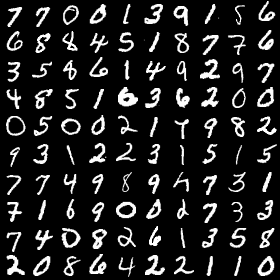 7 7 0 0 1 3 9 1 5 6
6 8 8 4 5 1 8 7 7 6
3 5 8 6 1 4 9 2 9 7
4 8 5 1 6 3 6 2 0 0
0 5 0 0 2 1 7 9 8 2
9 3 1 2 2 3 1 5 1 5
7 7 4 9 8 9 4 7 3 1
7 1 6 9 0 0 2 7 3 3
7 4 0 8 2 6 1 3 5 8
2 0 8 6 4 2 2 1 1 0